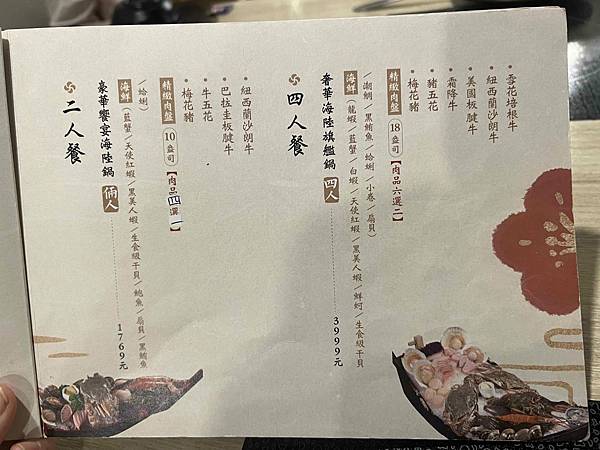 二人餐
豪華饗宴海陸鍋 倆人 1769元
海鮮 (藍蟹/天使紅蝦/黑美人蝦/生食級干貝/鮑魚/扇貝/黑鮪魚
/蛤蜊)
精緻肉盤 10盎司【肉品四選一】
•梅花豬
•牛五花
•巴拉圭板腱牛
•紐西蘭沙朗牛
四人餐
奢華海陸旗艦鍋 四人 3999元
海鮮 (龍蝦/藍蟹/白蝦/天使紅蝦/黑美人蝦/鮮蚵/生食級干貝
/潮鯛/黑鮪魚/蛤蜊/小卷/扇貝)
精緻肉盤 18盎司【肉品六選二】
•梅花豬
•豬五花
•霜降牛
•美國板腱牛
•紐西蘭沙朗牛
•雪花培根牛